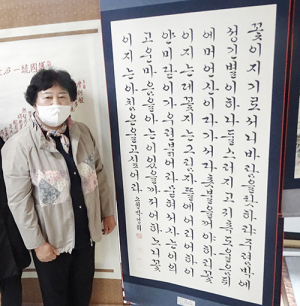 꽃이지기로서니바람을탓하랴주렴밖에
성긴별이하나둘스러지고귀촉도울음뒤
에머언산이다가서다촛불을꺼야하리꽃
이지는데꽃지는그림자뜰에어리어하이
얀미닫이가우련붉어라묻혀서사는이의
고운마음을아는이있을까저어하노니꽃
이지는아침은울고싶어라